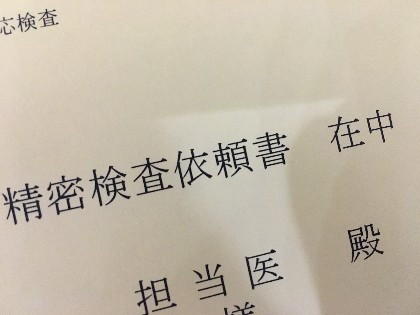 応検査
精密検査依頼書 在中
担当医 殿
様